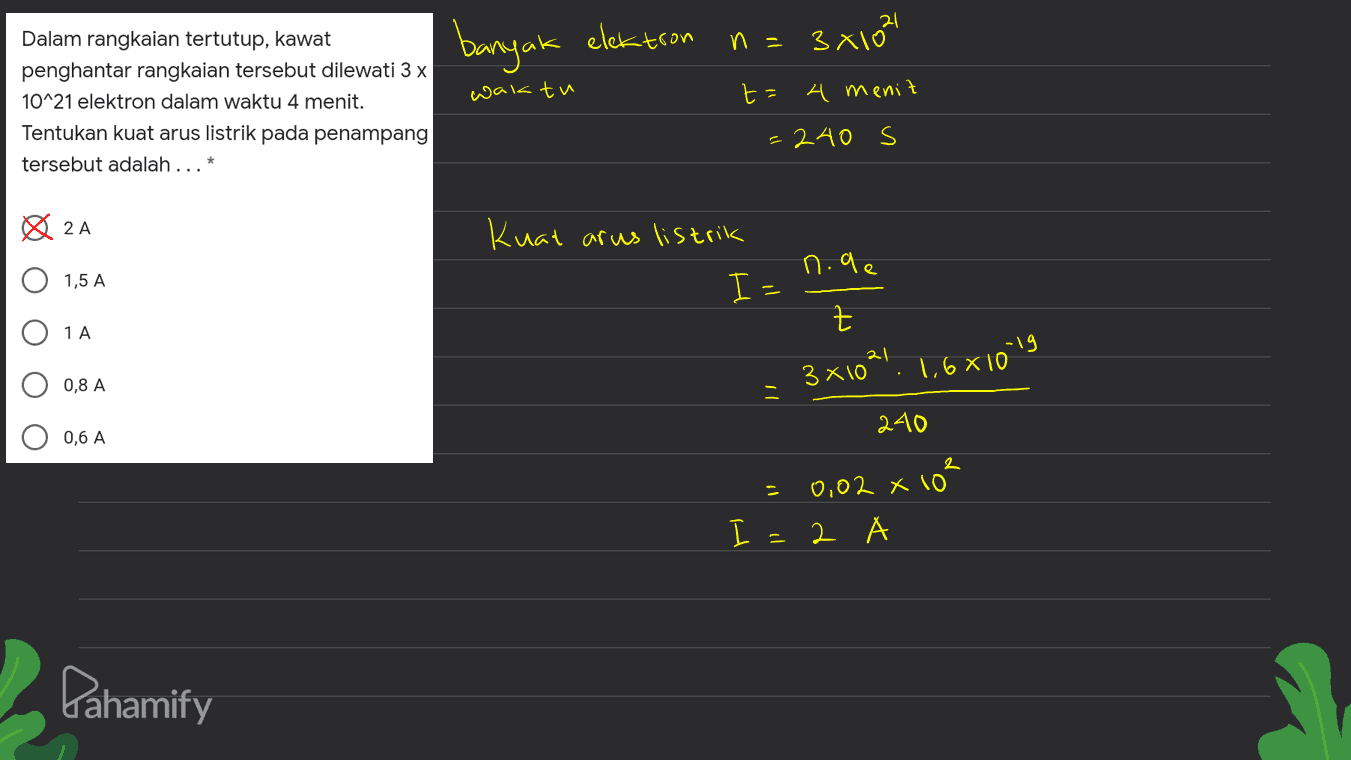 Dalam rangkaian tertutup, kawat
penghantar rangkaian tersebut dilewati 3 x
10^21 elektron dalam waktu 4 menit.
Tentukan kuat arus listrik pada penampang
tersebut adalah . . . *
2 A
1,5 A
1 A
0,8 A
0,6 A
banyak elektron n = 3 × 10²¹
waktu t = 4 menit
= 240 s
Kuat arus listrik
I = n . qₑ / t
= 3 × 10²¹ . 1,6 × 10⁻¹⁹ / 240
= 0,02 × 10²
I = 2 A
Pahamify